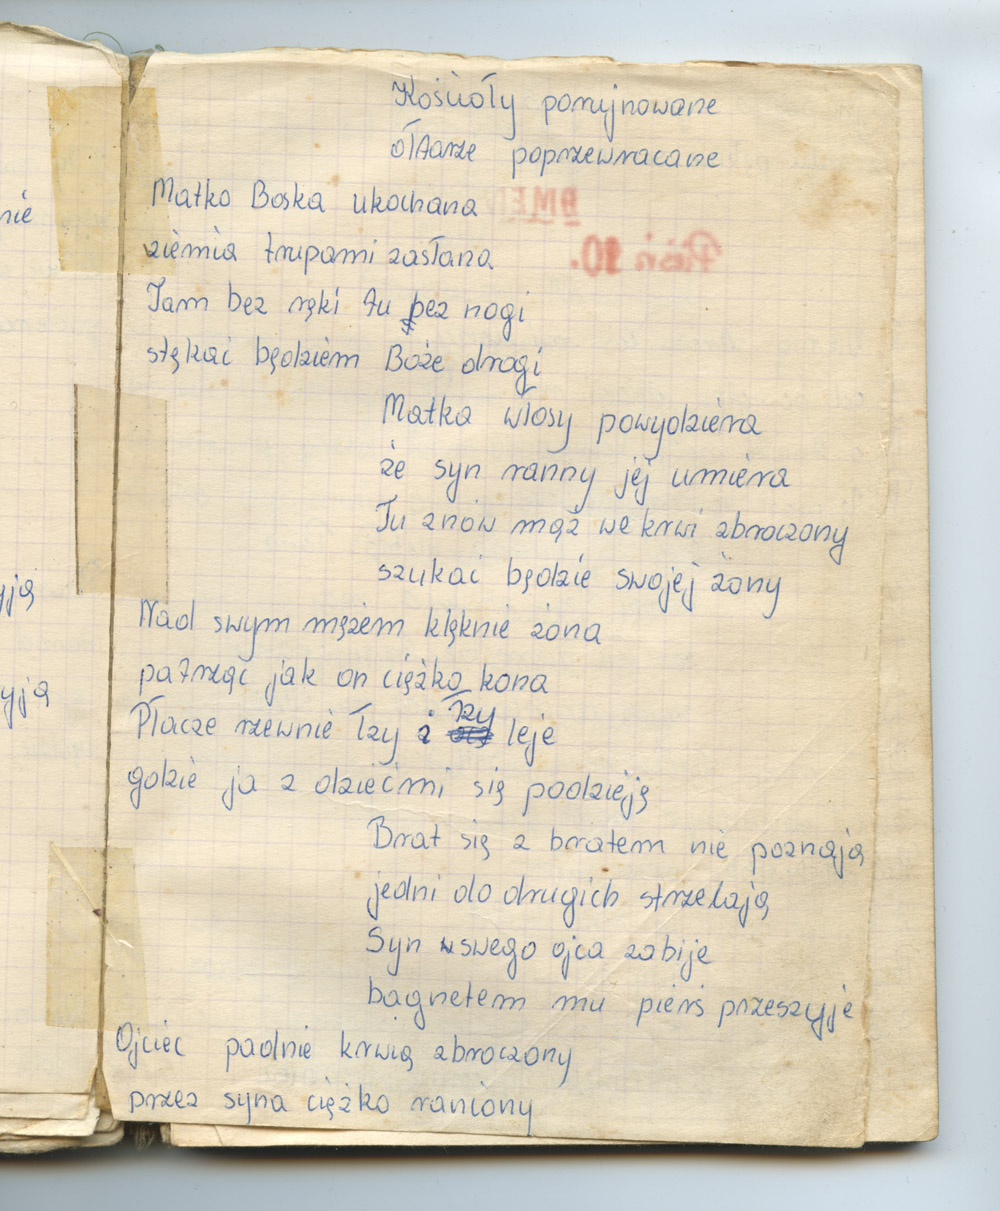 nie
yją
yją
Kościoły porujnowane
ołtarze poprzewracane
Matko Boska ukochana
ziemia trupami zasłana
Tam bez ręki tu bez nogi
stękać będziem Boże drogi
Matka włosy powydziera
że syn ranny jej umiera
Tu znów mąż we krwi zbroczony
szukać będzie swojej żony
Nad swym mężem klęknie żona
patrząc jak on ciężko kona
Płacze rzewnie łzy i łzy leje
gdzie ja z dziećmi się podzieję
Brat się z bratem nie poznają
jedni do drugich strzelają
Syn swego ojca zabije
bagnetem mu pierś przeszyje
Ojciec padnie krwią zbroczony
przez syna ciężko raniony